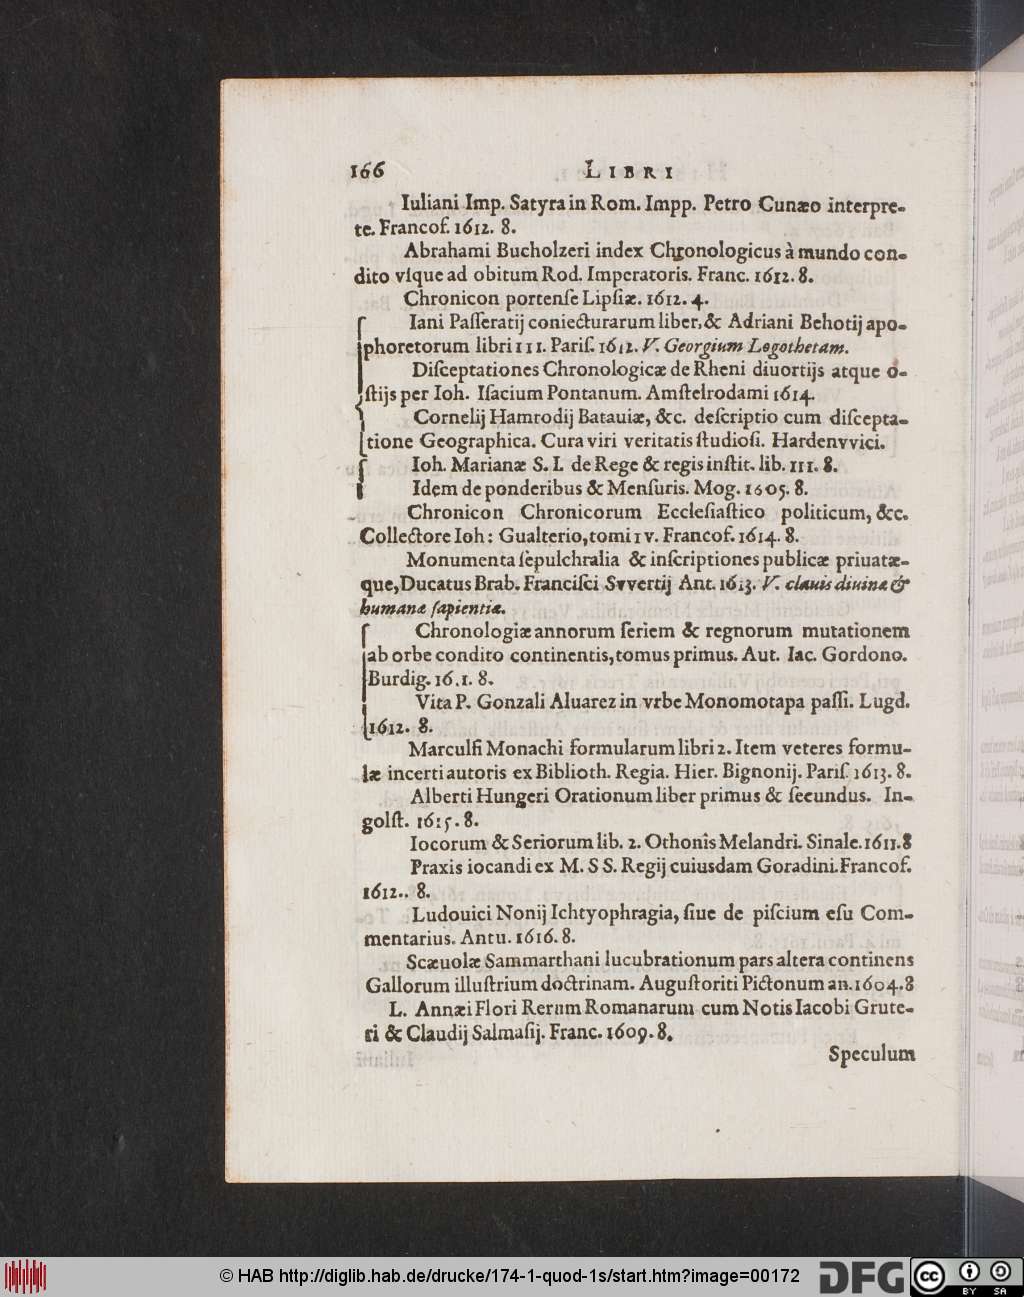 166 LIBRI
Iuliani Imp. Satyra in Rom. Impp. Petro Cunæo interpre-
te. Francof. 1612. 8.
Abrahami Bucholzeri index Chronologicus à mundo con-
dito vſque ad obitum Rod. Imperatoris. Franc. 1612. 8.
Chronicon portenſe Lipſiæ. 1612. 4.
Iani Paſſeratij coniecturarum liber, & Adriani Behotij apo-
phoretorum libri III. Pariſ. 1612. V. Georgium Logothetam.
Diſceptationes Chronologicæ de Rheni diuortijs atque o-
ſtijs per Ioh. Iſacium Pontanum. Amſtelrodami 1614.
Cornelij Hamrodij Batauiæ, &c. deſcriptio cum diſcepta-
tione Geographica. Cura viri veritatis ſtudioſi. Hardenvvici.
Ioh. Marianæ S. I. de Rege & regis inſtit. lib. III. 8.
Idem de ponderibus & Menſuris. Mog. 1605. 8.
Chronicon Chronicorum Eccleſiaſtico politicum, &c.
Collectore Ioh: Gualterio, tomi IV. Francof. 1614. 8.
Monumenta ſepulchralia & inſcriptiones publicæ priuatæ-
que, Ducatus Brab. Franciſci Svvertij Ant. 1613. V. clauis diuinæ &
humanæ ſapientiæ.
Chronologiæ annorum ſeriem & regnorum mutationem
ab orbe condito continentis, tomus primus. Aut. Iac. Gordono.
Burdig. 16.1. 8.
Vita P. Gonzali Aluarez in vrbe Monomotapa paſſi. Lugd.
1612. 8.
Marculfi Monachi formularum libri 2. Item veteres formu-
læ incerti autoris ex Biblioth. Regia. Hier. Bignonij. Pariſ. 1613. 8.
Alberti Hungeri Orationum liber primus & ſecundus. In-
golſt. 1615. 8.
Iocorum & Seriorum lib. 2. Othonis Melandri. Sinale. 1611. 8
Praxis iocandi ex M. SS. Regij cuiusdam Goradini. Francof.
1612.. 8.
Ludouici Nonij Ichtyophragia, ſiue de piſcium eſu Com-
mentarius. Antu. 1616. 8.
Scæuolæ Sammarthani lucubrationum pars altera continens
Gallorum illuſtrium doctrinam. Auguſtoriti Pictonum an. 1604. 8
L. Annæi Flori Rerum Romanarum cum Notis Iacobi Grute-
ri & Claudij Salmaſij. Franc. 1609. 8.
Speculum
© HAB http://diglib.hab.de/drucke/174-1-quod-1s/start.htm?image=00172 DFG CC BY SA